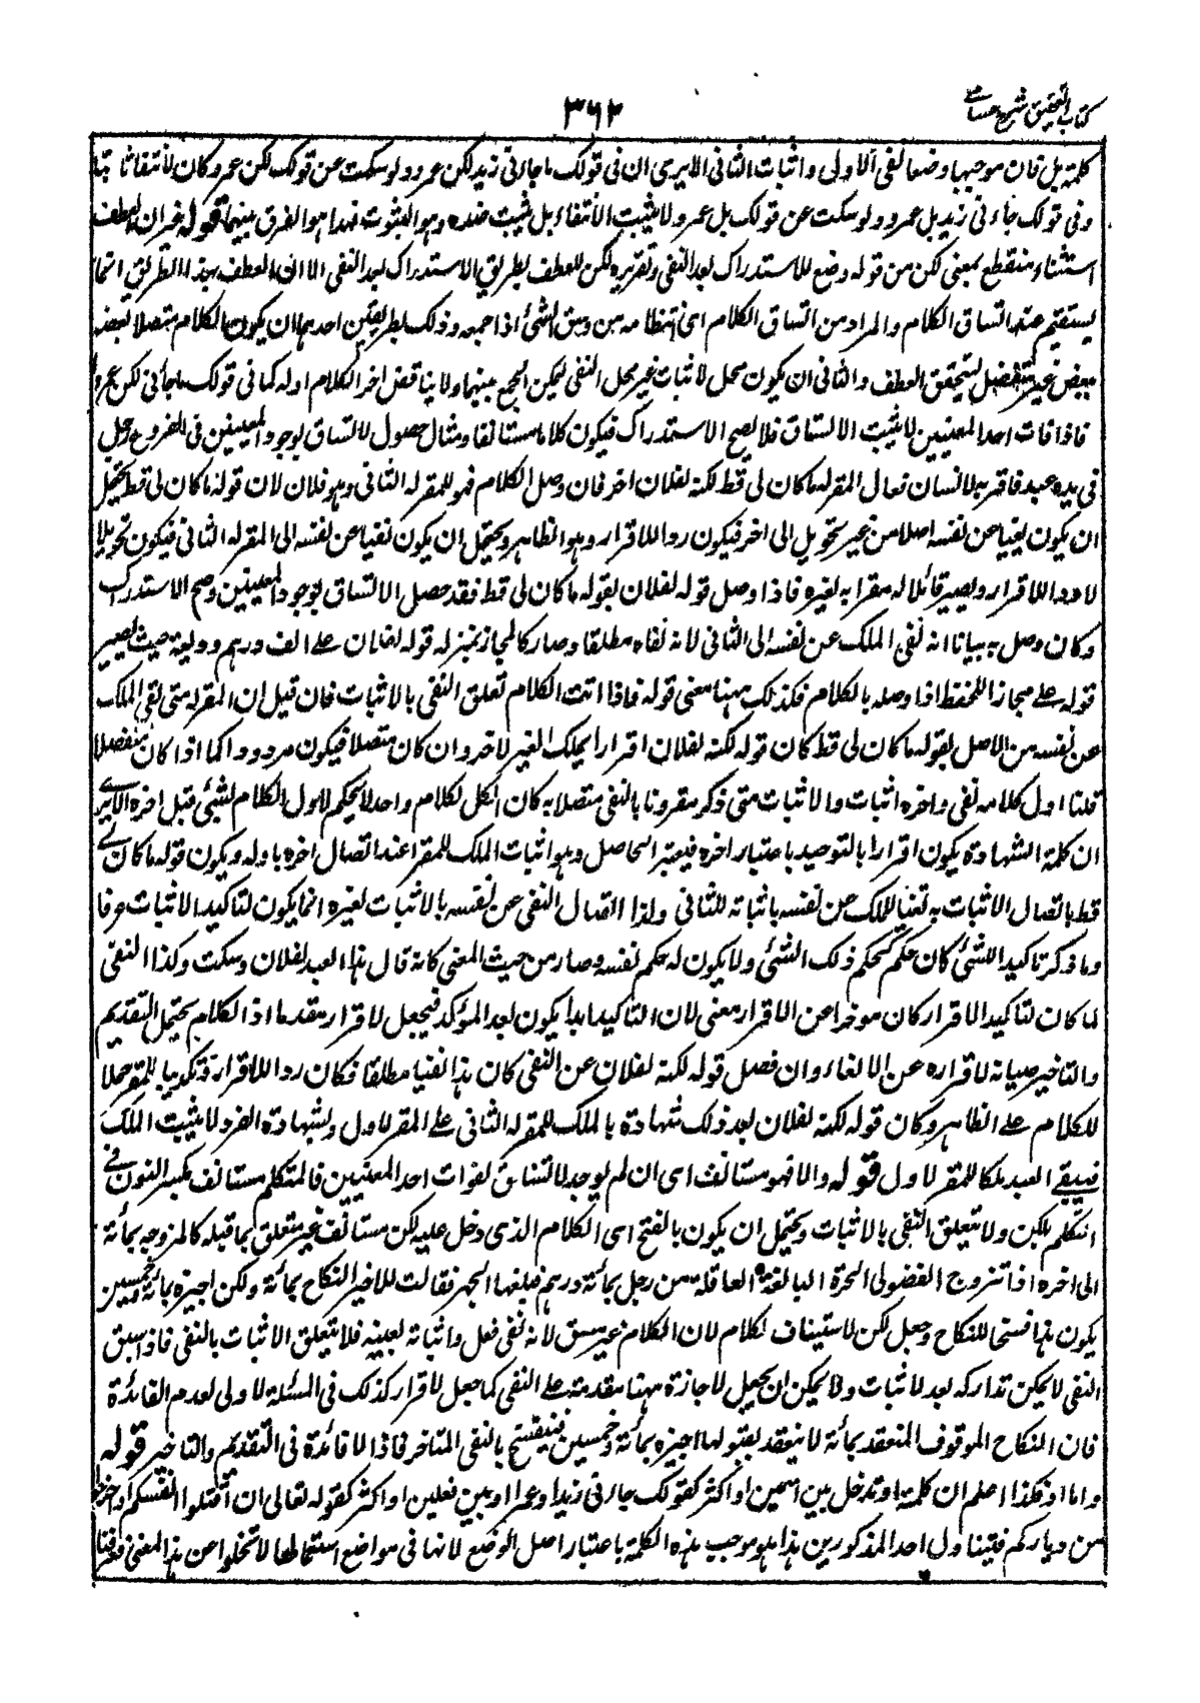 كتاب التحقيق شرح حسامي
٣٦٢
كلمة بل فان موجبها وضعا نفى الاولى واثبات الثانى الا يرى ان فى قولك ما جاءنى زيد لكن عمرو ولو سكت عن قولك لكن عمرو كان الانتفاء ثابتا
وفى قولك جاءنى زيد بل عمرو ولو سكت عن قولك بل عمرو لا يثبت الانتفاء بل يثبت ضده وهو الثبوت فهذا هو الفرق بينهما قوله غير ان العطف
استثناء منقطع بمعنى لكن من قوله وضع للاستدراك بعد النفى وتقريره لكن للعطف بطريق الاستدراك بعد النفى الا ان العطف بهذا الطريق انما
يستقيم عند اتساق الكلام والمراد من اتساق الكلام اى انتظامه من وسق الشئ اذا جمعه وذلك بطريقين احدهما ان يكون الكلام متصلا بعضه
ببعض غير منفصل ليتحقق العطف والثانى ان يكون محل الاثبات غير محل النفى ليمكن الجمع بينهما ولا يناقض اخر الكلام اوله كما فى قولك ما جاءنى لكن عمرو
فاذا فات احد المعنيين لا يثبت الاتساق فلا يصح الاستدراك فيكون كلاما مستانفا ومثال حصول الاتساق بوجود المعنيين فى الفروع رجل
فى يده عبد فاقر به لانسان فقال المقر له ما كان لى قط لكنه لفلان اخر فان وصل الكلام فهو للمقر له الثانى وهو فلان لان قوله ما كان لى قط يحتمل
ان يكون نفيا عن نفسه اصلا من غير تحويل الى اخر فيكون ردا للاقرار وهو الظاهر ويحتمل ان يكون نفيا عن نفسه الى المقر له الثانى فيكون تحويلا
لا ردا للاقرار ويصير قائلا له مقرا به لغيره فاذا وصل قوله لفلان بقوله ما كان لى قط فقد حصل الاتساق لوجود المعنيين وصح الاستدراك
وكان وصل به بيانا انه نفى الملك عن نفسه الى الثانى لا نه نفاه مطلقا وصار كالمجاز بمنزلة قوله لفلان على الف درهم وديعة حيث يصير
قوله على مجازا للحفظ اذا وصله بالكلام فكذلك ههنا معنى قوله فاذا اتسق الكلام تعلق النفى بالاثبات فان قيل ان المقر له متى نفى الملك
عن نفسه من الاصل بقوله ما كان لى قط كان قوله لكنه لفلان اقرارا بملك الغير لاخر وان كان متصلا فيكون مردودا كما اذا كان منفصلا
قلنا اول كلامه نفى واخره اثبات والاثبات متى ذكر مقرونا بالنفى متصلا به كان الكل لكلام واحد لا يحكم لاول الكلام لشئ قبل اخره الا يرى
ان كلمة الشهادة يكون اقرارا بالتوحيد باعتبار اخره فيعتبر الحاصل وهو اثبات الملك للمقر عند اتصال اخره باوله ويكون قوله ما كان لى
قط باتصال الاثبات به نفيا للملك عن نفسه باثباته للثانى ولذا اتصال النفى عن نفسه بالاثبات لغيره انما يكون لتاكيد الاثبات عرفا
وما ذكر تاكيدا للشئ كان حكمه كحكم ذلك الشئ ولا يكون له حكم نفسه وصار من حيث المعنى كانه قال هذا العبد لفلان وسكت وكذا النفى
لما كان لتاكيد الاقرار كان موخرا عن الاقرار معنى لان التاكيد ابدا يكون بعد المؤكد فيجعل الاقرار مقدما اذ الكلام يحتمل التقديم
والتاخير صيانة لاقراره عن الالغاء وان فصل قوله لكنه لفلان عن النفى كان هذا نفيا مطلقا فكان ردا للاقرار وتكذيبا للمقر حملا
للكلام على الظاهر وكان قوله لكنه لفلان بعد ذلك شهادة بالملك للمقر له الثانى على المقر الاول وبشهادة الفرد لا يثبت الملك
فيبقى العبد ملكا للمقر الاول قوله والا فهو مستانف اى ان لم يوجد الاتساق لفوات احد المعنيين فالمتكلم مستانف بكسر النون فى
التكلم بلكن ولا تعلق النفى بالاثبات ويحتمل ان يكون بالفتح اى الكلام الذى دخل عليه لكن مستانف غير متعلق بما قبله كالمزوجة بمائة
الى اخره اذا تزوج الفضولى الحرة البالغة العاقلة من رجل بمائة درهم فبلغها الخبر فقالت لا اجيز النكاح بمائة ولكن اجيزه بمائة وخمسين
يكون هذا فسخا للنكاح وجعل لكن لاستيناف الكلام لان الكلام غير متسق لانه نفى فعل واثباته بعينه فلا يتعلق الاثبات بالنفى فاذا سبق
النفى لا يمكن تداركه بعد الاثبات ولا يمكن ان يجعل الاجازة ههنا مقدمة على النفى كما جعل الاقرار كذلك فى المسئلة الاولى لعدم الفائدة
فان النكاح الموقوف المنعقد بمائة لا ينعقد بقولها اجيزه بمائة وخمسين فينفسخ بالنفى المتاخر فاذا لا فائدة فى التقديم والتاخير قوله
واما او فكذا اعلم ان كلمة او تدخل بين اسمين او اكثر كقولك جاءنى زيد او عمرو او بين فعلين او اكثر كقوله تعالى ان اقتلوا انفسكم او اخرجوا
من دياركم فتتناول احد المذكورين هذا هو موجب هذه الكلمة باعتبار اصل الوضع لانها فى مواضع استعمالها لا تخلوا عن هذا المعنى فعرفنا